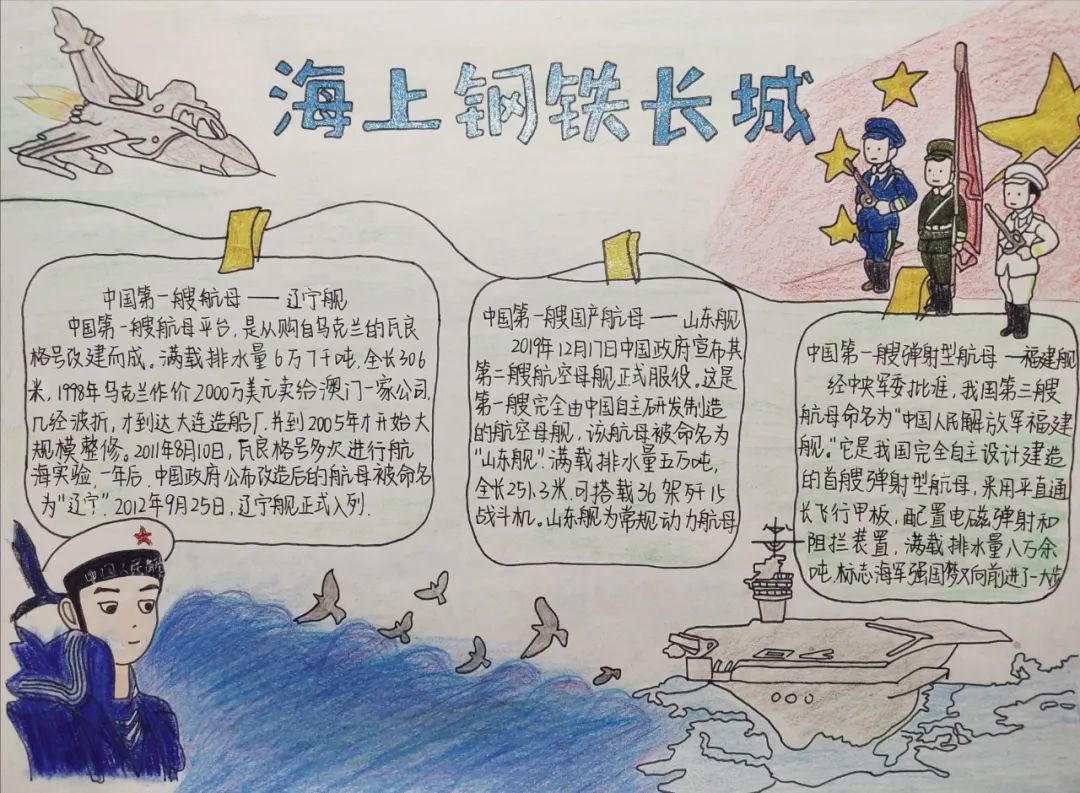 海上钢铁长城
中国第一艘航母——辽宁舰
中国第一艘航母平台，是从购自乌克兰的瓦良
格号改建而成。满载排水量6万7千吨，全长306
米，1998年乌克兰作价2000万美元卖给澳门一家公司，
几经波折，才到达大连造船厂，并到2005年才开始大
规模整修。2011年8月10日，瓦良格号多次进行航
海实验，一年后，中国政府公布改造后的航母被命名
为“辽宁”。2012年9月25日，辽宁舰正式入列.
中国第一艘国产航母——山东舰
2019年12月17日中国政府宣布其
第二艘航空母舰正式服役。这是
第一艘完全由中国自主研发制造
的航空母舰，该航母被命名为
“山东舰”.满载排水量五万吨，
全长251.3米.可搭载36架歼15
战斗机。山东舰为常规动力航母
中国第一艘弹射型航母—福建舰
经中央军委批准，我国第三艘
航母命名为“中国人民解放军福建
舰。”它是我国完全自主设计建造
的首艘弹射型航母，采用平直通
长飞行甲板，配置电磁弹射和
阻拦装置，满载排水量八万余
吨，标志海军强国梦又向前进了一大步
中国人民